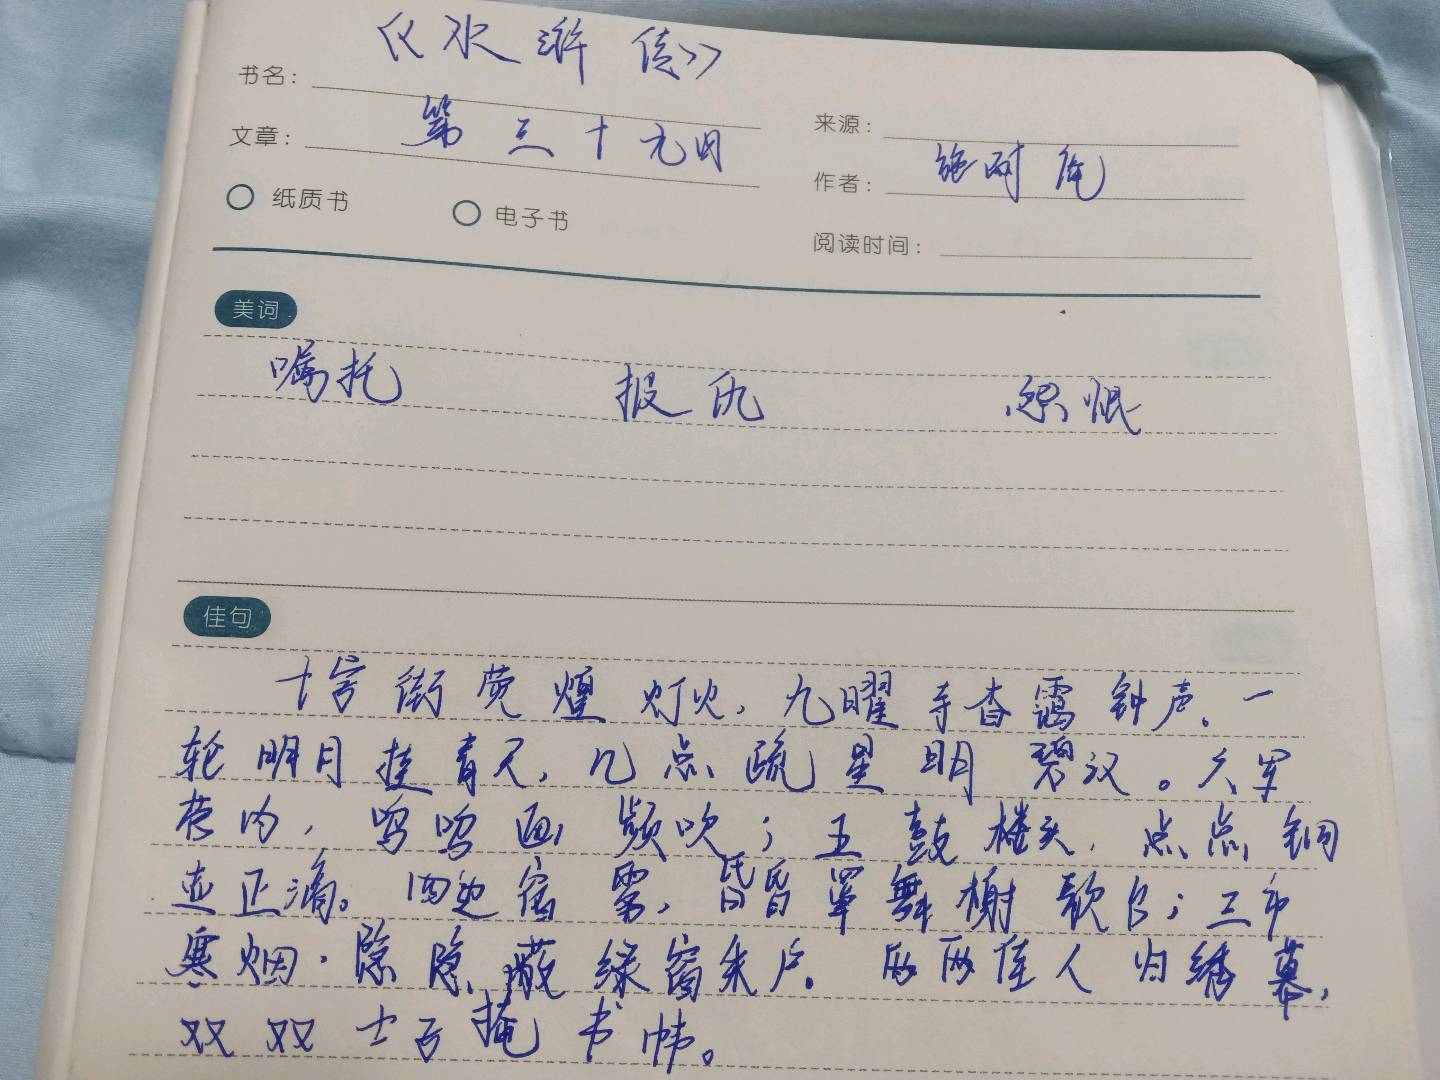 《水浒传》
书名：
第三十九回
文章：
来源：
施耐庵
作者：
纸质书
电子书
阅读时间：
美词
嘱托 报仇 怨恨
佳句
十字街荧煌灯火，九曜寺杳霭钟声。一
轮明月挂青天，几点疏星明碧汉。六军
营内，呜呜画角频吹；五鼓楼头，点点铜
壶正滴。四边宿雾，昏昏罩舞榭歌台；三市
寒烟，隐隐蔽绿窗朱户。两两佳人归绣幕，
双双士子掩书帏。